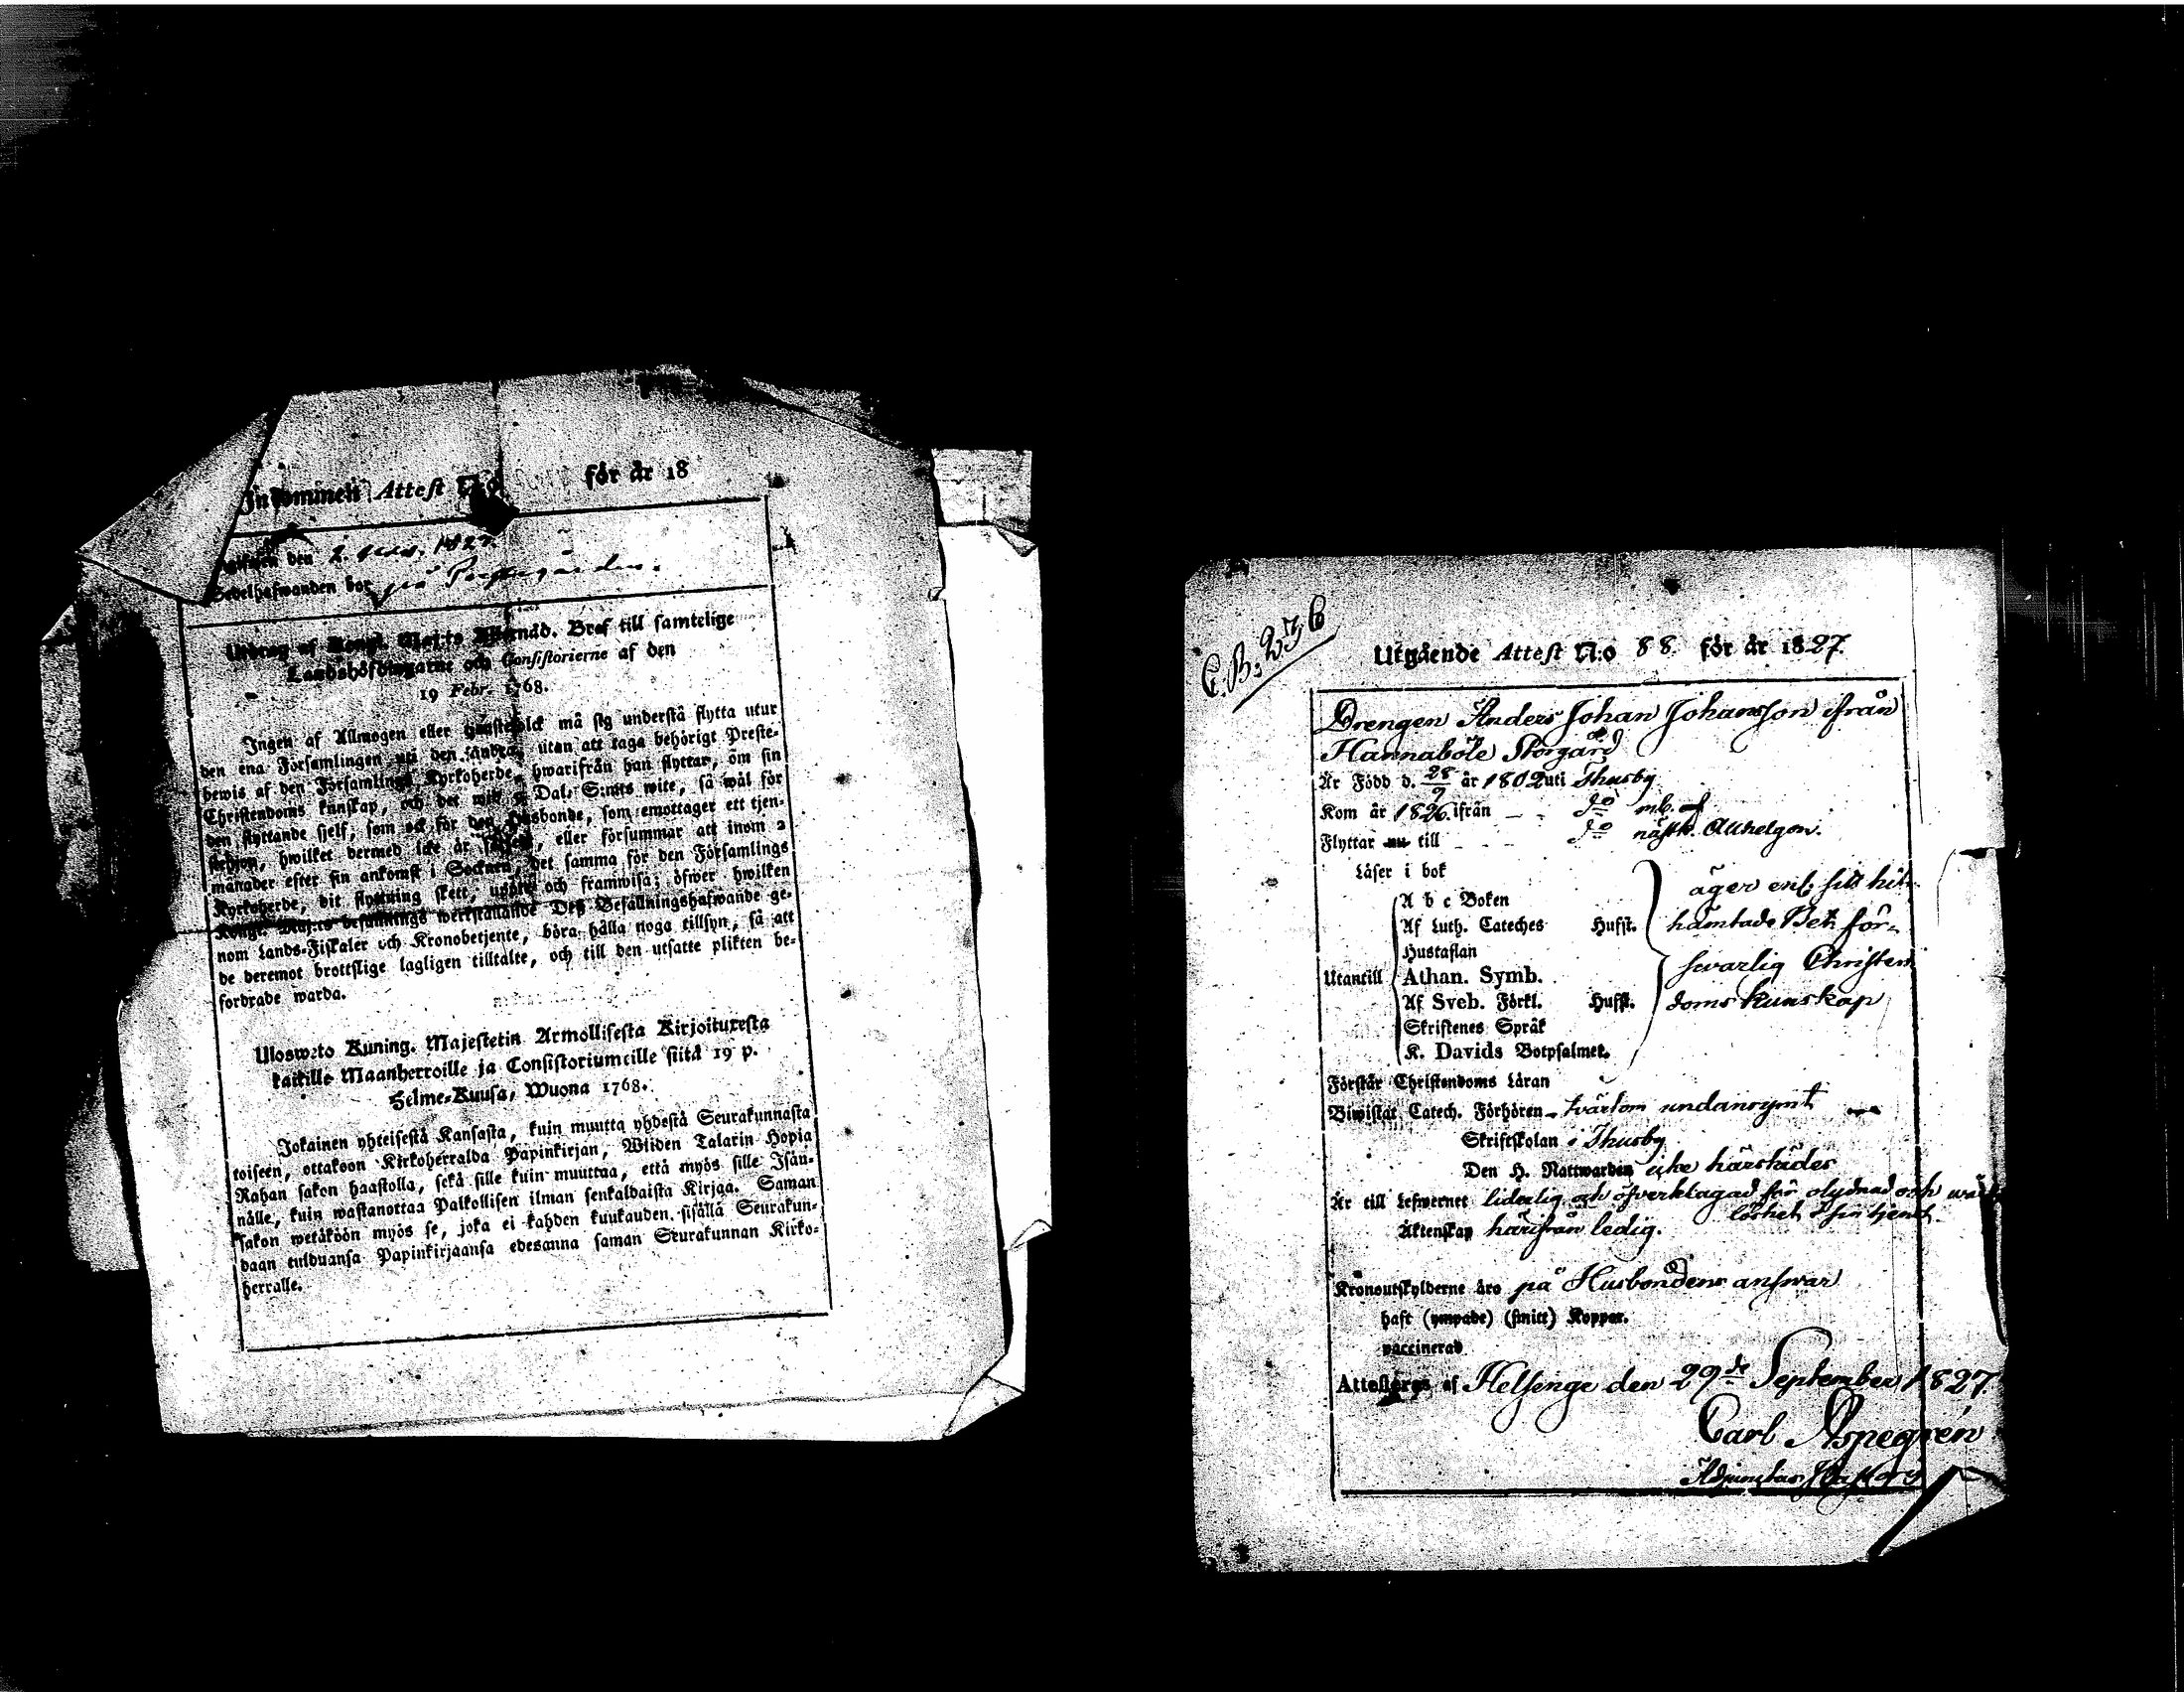 Inkommen Attest N:o för år 18
den 2. 1827.
Sedelhafwanden bor på
Utdrag af Kongl. Maj:ts Allernåd. Bref till samtelige
Landshöfdingarne och Consistorierne af den
19 Febr. 1768.
Ingen af Allmogen eller tjenstefolck må sig understå flytta utur
den ena Församlingen uti den andra, utan att taga behörigt Preste-
bewis af den Församlings Kyrkoherde, hwarifrån han flyttar, om sin
Christendoms kunskap, och det wid Dal. S:mts wite, så wäl för
den flyttande sjelf, som ock för den Husbonde, som emottager ett tjen-
stehjon, hwilket dermed icke är försedt, eller försummar att inom 2
månader efter sin ankomst i Socknen, det samma för den Församlings
Kyrkoherde, dit flyttning skett, upte och framwisa; öfwer hwilken
Kongl. Maj:ts befallnings werkställande Des Befallningshafwande ge-
nom Lands-Fiskaler och Kronobetjente, böra hålla noga tillsyn, så att
de deremot brottslige lagligen tilltalte, och till den utsatte plikten be-
fordrade warda.
Uloswoto Kuning. Majestetin Armollisesta Kirjoituxesta
kaikille Maanherroille ja Consistoriumeille siitä 19 p.
Helme-Kuusa, Wuona 1768.
Jokainen yhteisestä Kansasta, kuin muutta yhdestä Seurakunnasta
toiseen, ottakoon Kirkoherralda Papinkirjan, Wiiden Talarin Hopia
Rahan sakon haastolla, sekä sille kuin muuttaa, että myös sille Isän-
nälle, kuin wastanottaa Palkollisen ilman senkaldaista Kirjaa. Saman
sakon wetäköön myös se, joka ei kahden kuukauden sisällä Seurakun-
daan tulduansa Papinkirjaansa edesanna saman Seurakunnan Kirko-
herralle.
C.B. 236
Utgående Attest N:o 88 för år 1827.
Drengen Anders Johan Johansson ifrån
Hannaböle Storgård
Är Född d. 28/9 år 1802 uti Thusby
Kom år 1826 ifrån d:o m.b.
Flyttar nu till d:o nästk. Allhelgon.
Läser i bok
A b c Boken
Af Luth. Cateches Husst.
Hustaflan
Utantill Athan. Symb.
Af Sveb. Förkl. Husst.
Skriftenes Språk
K. Davids Botpsalmer.
äger enl. sitt hit
hämtade Bet. för-
swarlig Christen
doms kunskap
Förstår Christendoms Läran
Biwistat Catech. Förhören tvärtom undanrymt
Skriftskolan i Thusby
Den H. Nattwarden icke härstädes
Är till Lefwernet liderlig och öfverklagad för olydnad och wårds
löshet i sin tjenst.
Äktenskap härifrån ledig.
Kronoutskylderne äro på Husbondens answar
haft (ympade) (smitt) Koppor.
vaccinerad
Attesterar af Helsinge den 29de September 1827.
Carl Aspegrén
Adjunctus Pastoris